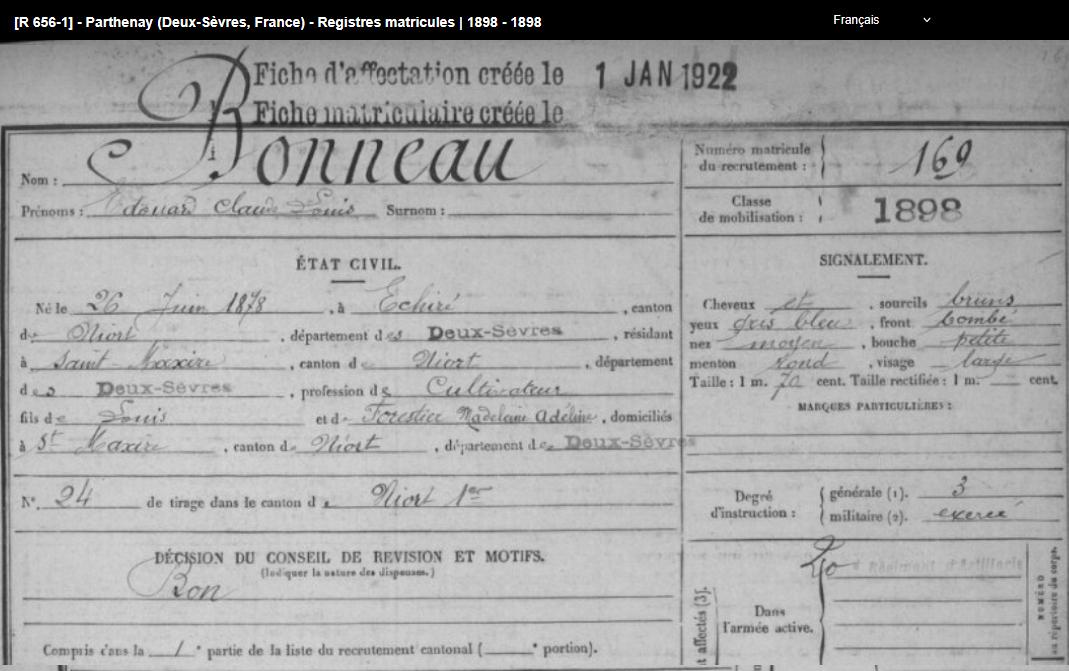 [R 656-1] - Parthenay (Deux-Sèvres, France) - Registres matricules | 1898 - 1898
Français
Fiche d'affectation créée le 1 JAN 1922
Fiche matriculaire créée le
Nom : Bonneau
Prénoms : Edouard Claude Louis Surnom :
Numéro matricule du recrutement : 169
Classe de mobilisation : 1898
ÉTAT CIVIL.
Né le 26 Juin 1878, à Echiré, canton
de Niort, département des Deux-Sèvres, résidant
à Saint-Maxire, canton de Niort, département
des Deux-Sèvres, profession de Cultivateur
fils de Louis et de Forestier Madelaine Adéline, domiciliés
à St Maxire, canton de Niort, département de Deux-Sèvres
N° 24 de tirage dans le canton de Niort 1er
DÉCISION DU CONSEIL DE REVISION ET MOTIFS.
(Indiquer la nature des dispenses.)
Bon
Compris dans la 1e partie de la liste du recrutement cantonal ( e portion).
SIGNALEMENT.
Cheveux et, sourcils bruns
yeux gris bleu, front bombé
nez moyen, bouche petite
menton rond, visage large
Taille : 1 m. 70 cent. Taille rectifiée : 1 m. cent.
MARQUES PARTICULIÈRES :
Degré d'instruction :
générale (1). 3
militaire (2). exercé
Dans l'armée active.
20e Régiment d'Artillerie
t affectés (3).
NUMÉRO
au répertoire du corps.